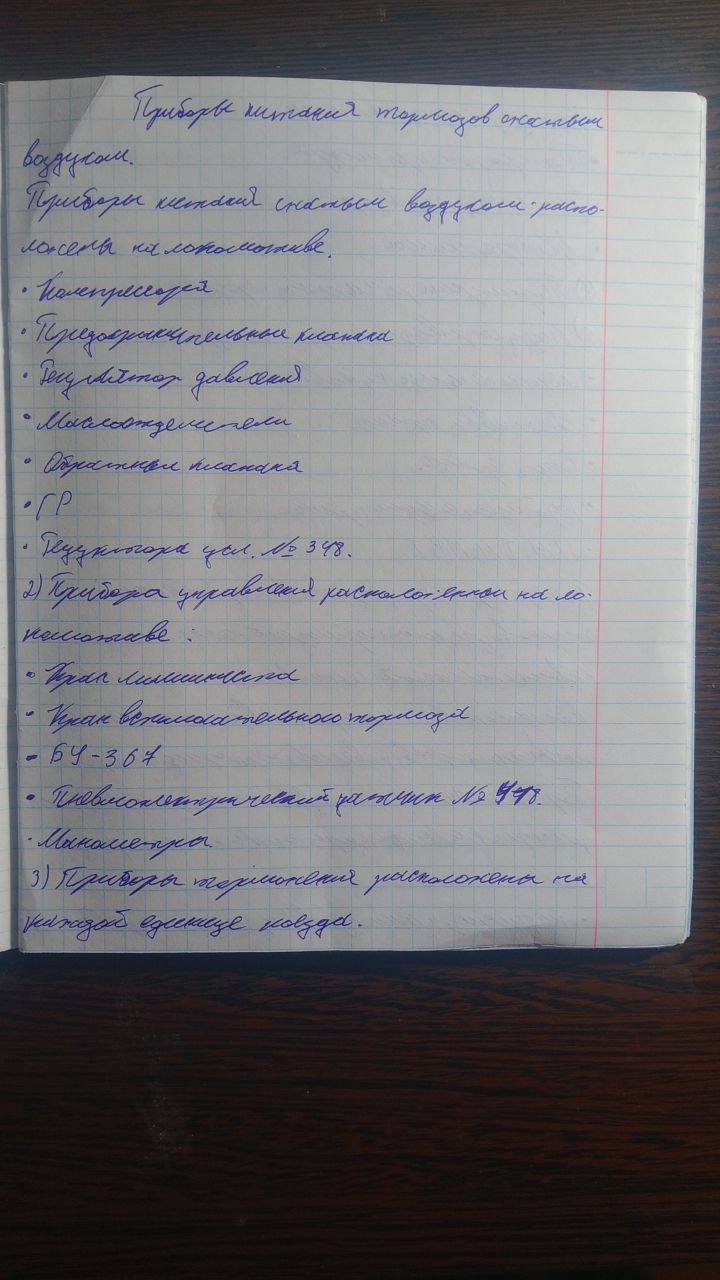 Приборы питания тормозов сжатым
воздухом.
Приборы питания сжатым воздухом - распо-
ложены на локомотиве.
• Компрессоря
• Предохранительные клапана
• Регулятор давления
• Маслоотделители
• Обратные клапана
• ГР
• Редуктора усл. № 348.
2) Прибора управления расположенные на ло-
комотиве :
• Кран машиниста
• Кран вспомогательного тормоза
• БУ-367
• Пневмоэлектрический датчик № 418.
• Манометры.
3) Приборы торможения расположены на
каждой единице поезда.